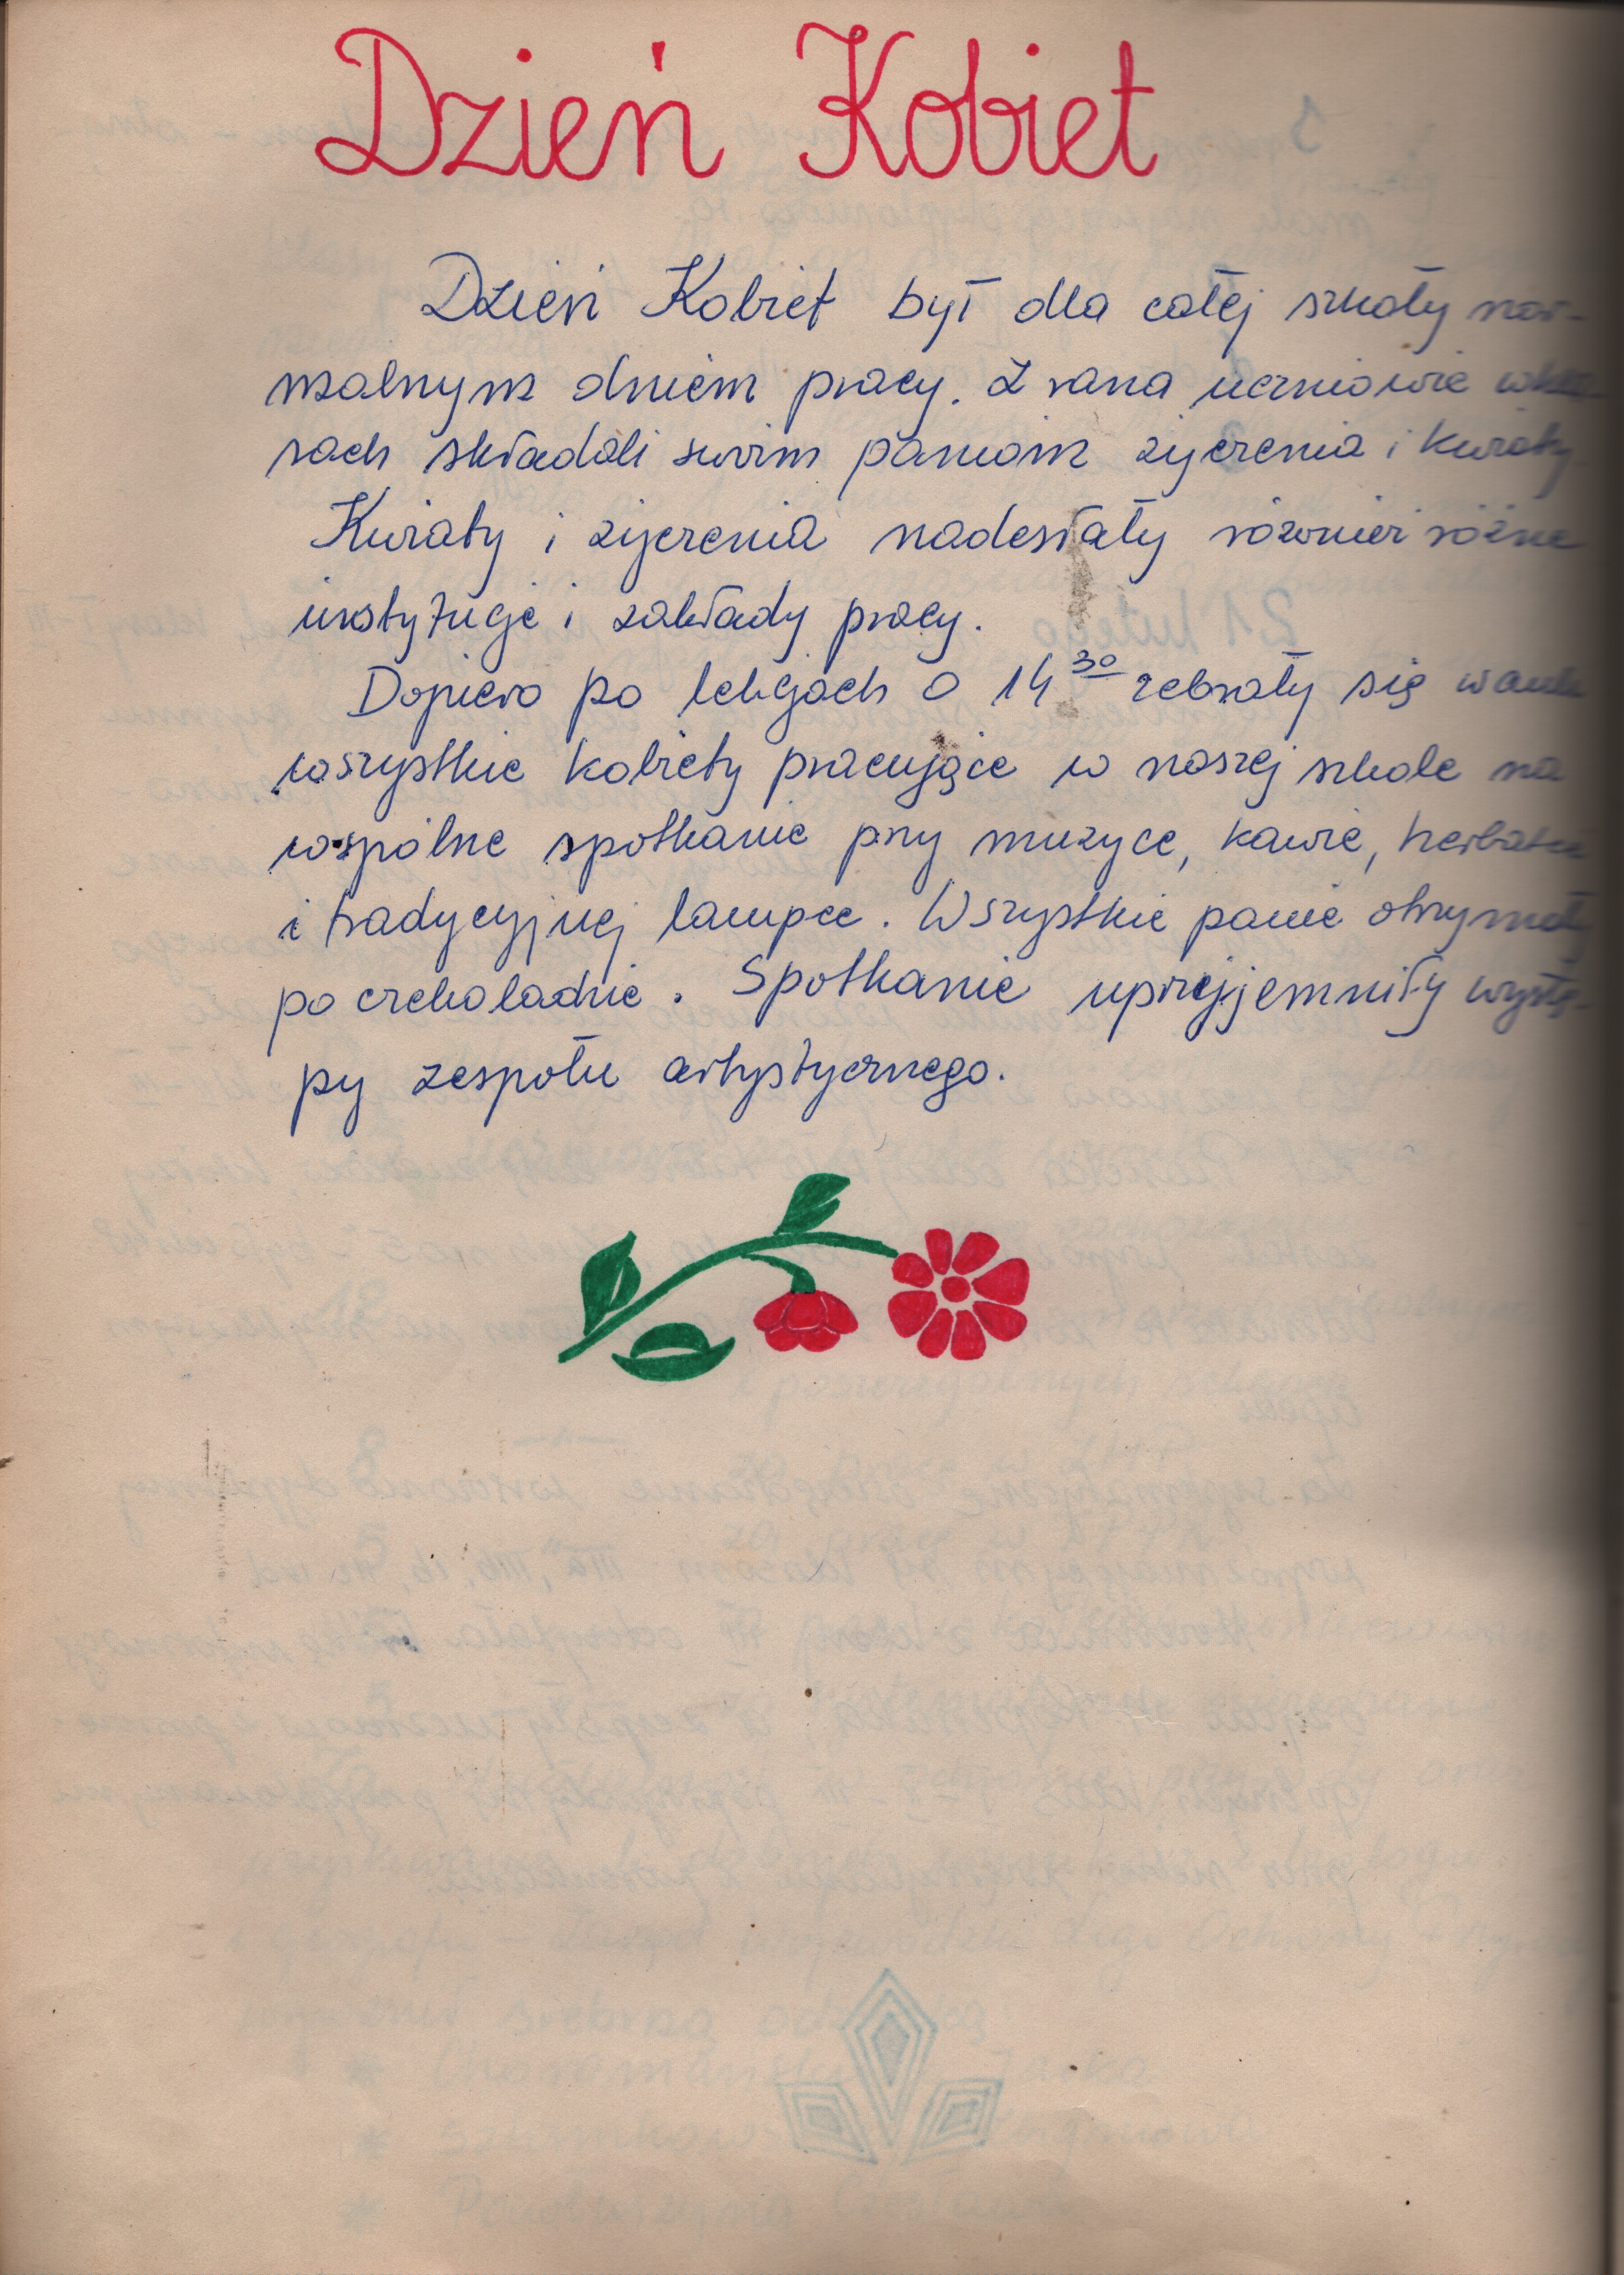 Dzień Kobiet
Dzień Kobiet był dla całej szkoły nor-
malnym dniem pracy. Z rana uczniowie w kla-
sach składali swim paniom życzenia i kwiaty.
Kwiaty i życzenia nadesłały również różne
instytucje i zakłady pracy.
Dopiero po lekcjach o 14³⁰ zebrały się w auli
wszystkie kobiety pracujące w naszej szkole na
wspólne spotkanie przy muzyce, kawie, herbatce
i tradycyjnej lampce. Wszystkie panie otrzymały
po czekoladzie. Spotkanie uprzyjemniły wystę-
py zespołu artystycznego.